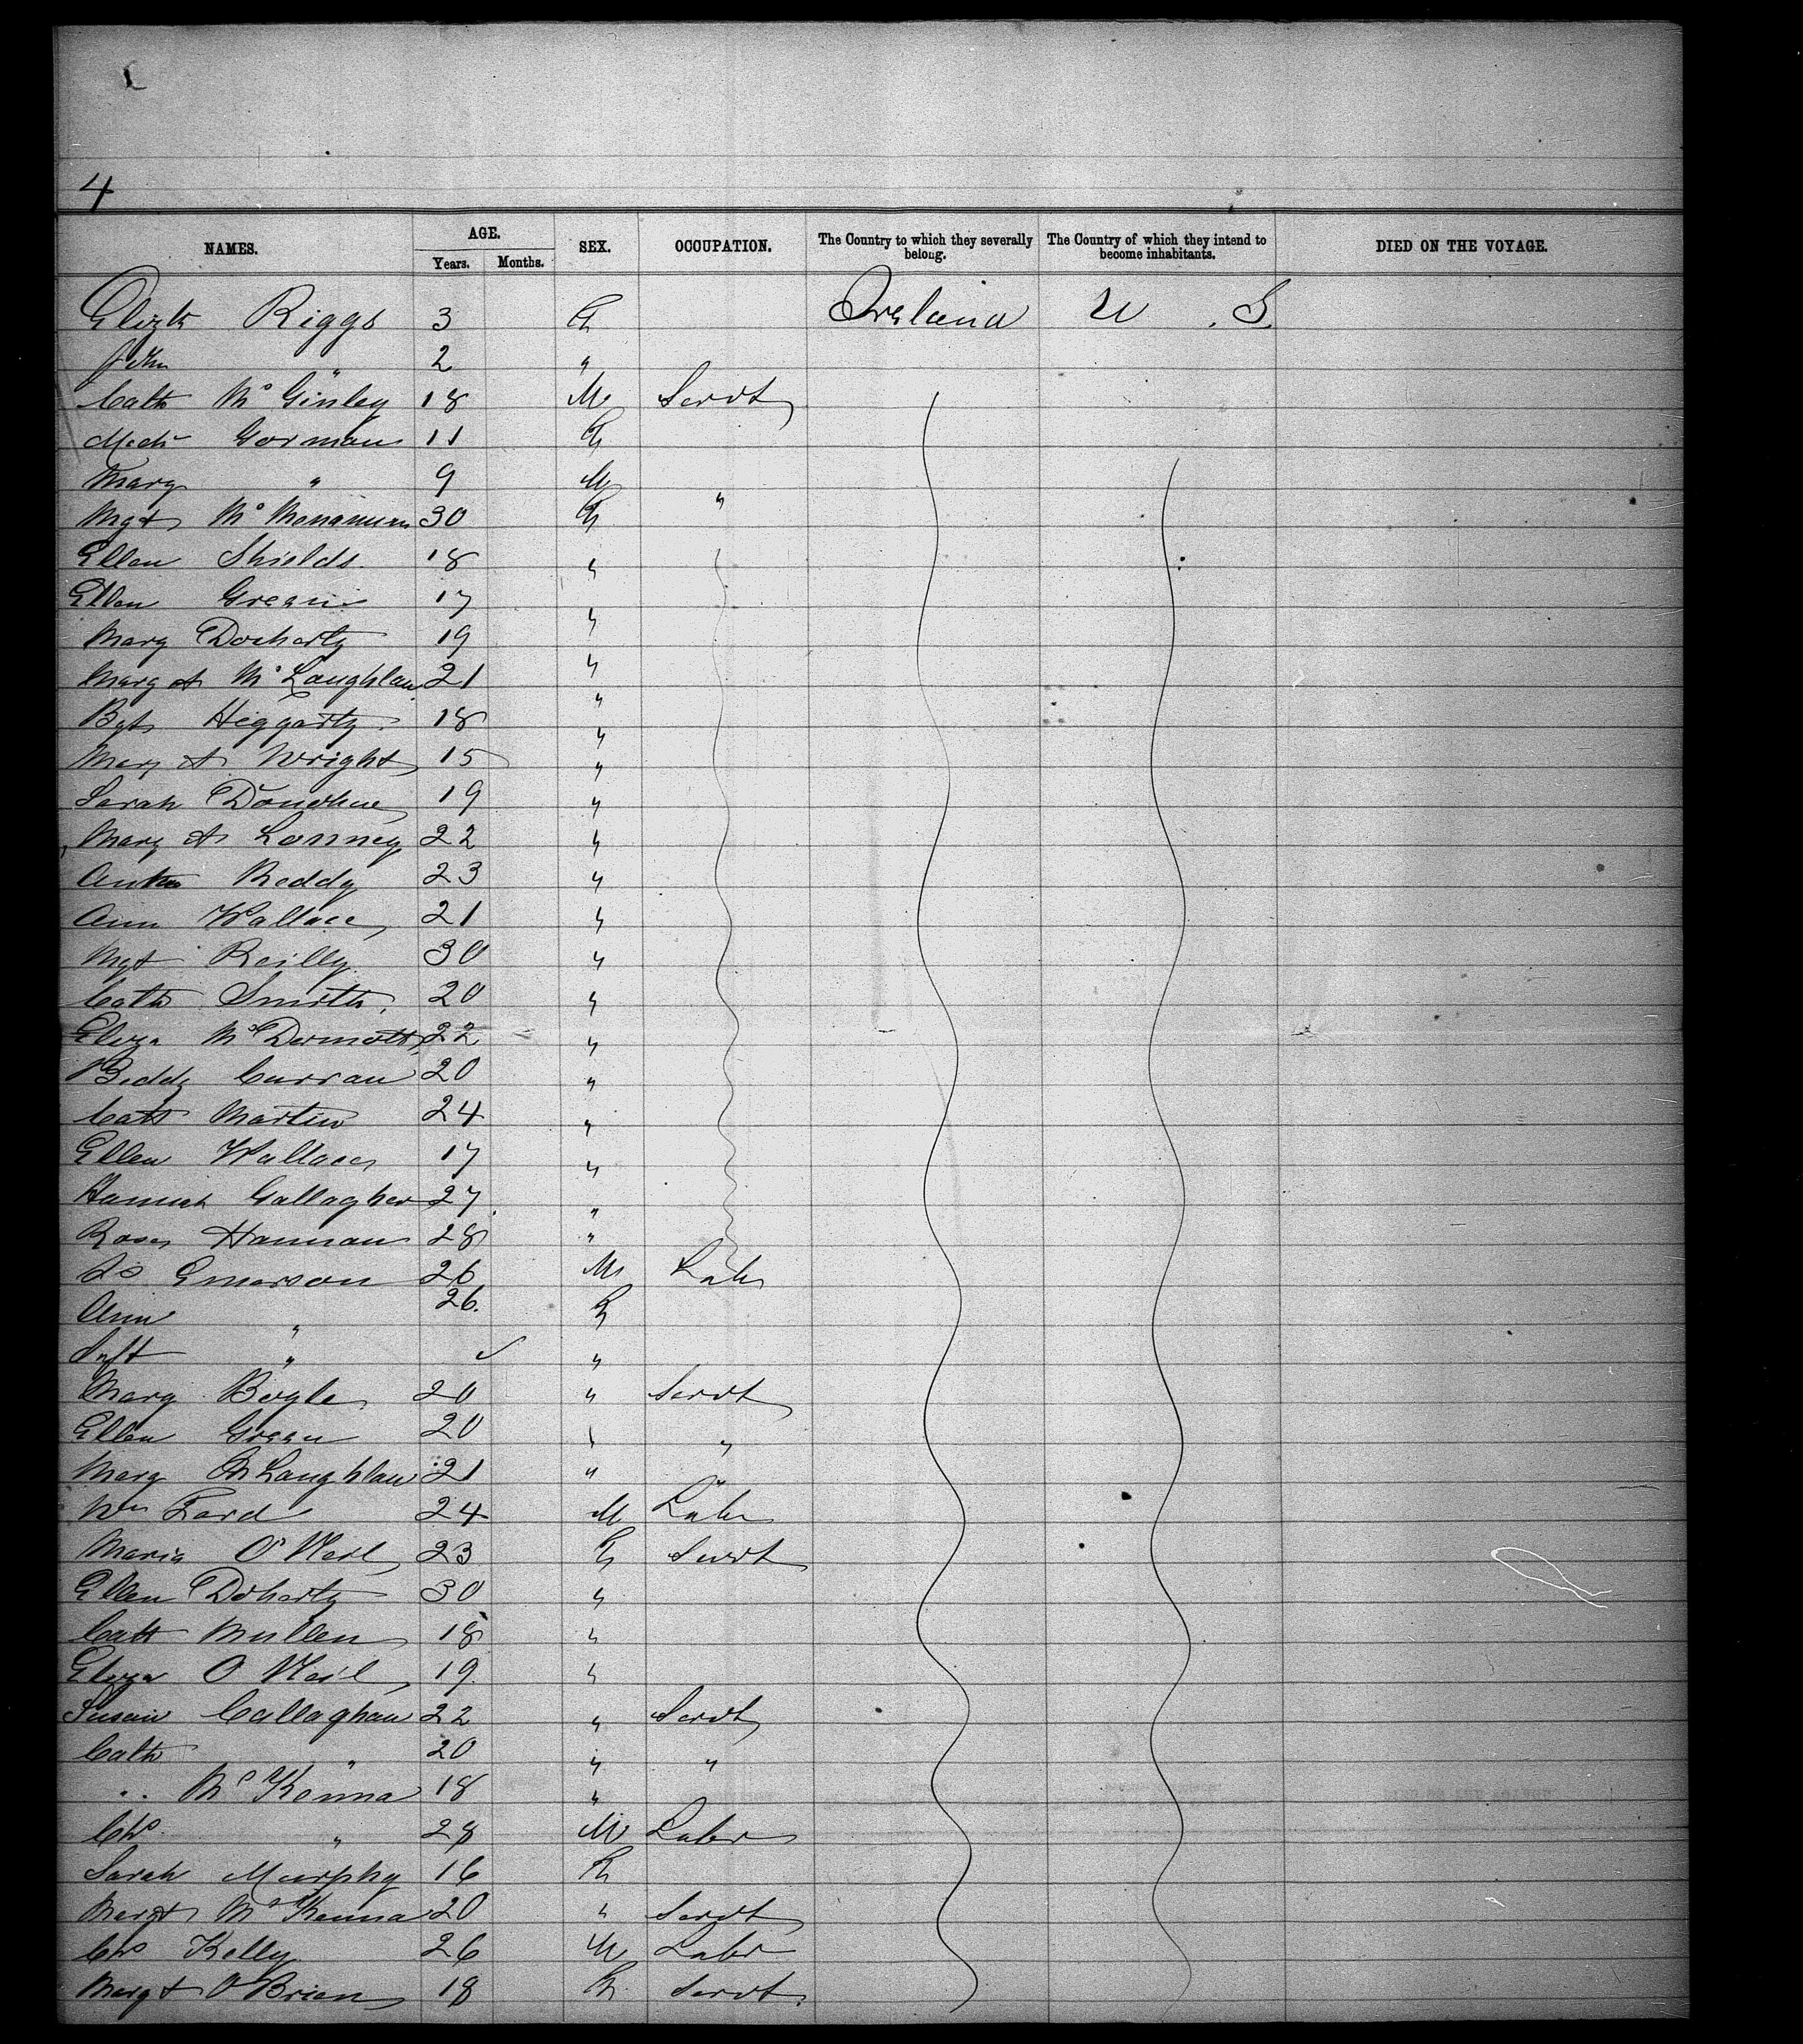 4
NAMES. AGE. Years. Months. SEX. OCCUPATION. The Country to which they severally belong. The Country of which they intend to become inhabitants. DIED ON THE VOYAGE.
Elizth Riggs 3 F Ireland U. S.
John " 2 "
Cath McGinley 18 M Servt
Gorman 11 F
Mary " 9 M
Mgt McMenamin 30 F "
Ellen Shields 18 "
Ellen Green 17 "
Mary Docherty 19 "
Mary A McLaughlan 21 "
Bgt Heggarty 18 "
Mary A Wright 15 "
Sarah Donohue 19 "
Mary A Lonney 22 "
Reddy 23 "
Ann Wallace 21 "
Mgt Reilly 30 "
Cath Smith 20 "
Eliza McDermott 22 "
Biddy Curran 20 "
Cath Martin 24 "
Ellen Wallace 17 "
Hannah Gallagher 27 "
Rose Hannan 28 "
Emerson 26 M Labr
Ann " 26 F
Inft " ✓ "
Mary Boyle 20 " Servt
Ellen Green 20 " "
Mary McLaughlan 21 " "
Wm Ford 24 M Labr
Maria O'Neil 23 F Servt
Ellen Doherty 30 "
Cath Mullen 18 "
Eliza O'Neil 19 "
Susan Callaghan 22 " Servt
Cath " 20 " "
" McKenna 18 "
Chs " 28 M Labr
Sarah Murphy 16 F
Margt McKenna 20 " Servt
Chs Kelly 26 M Labr
Margt O'Brien 18 F Servt